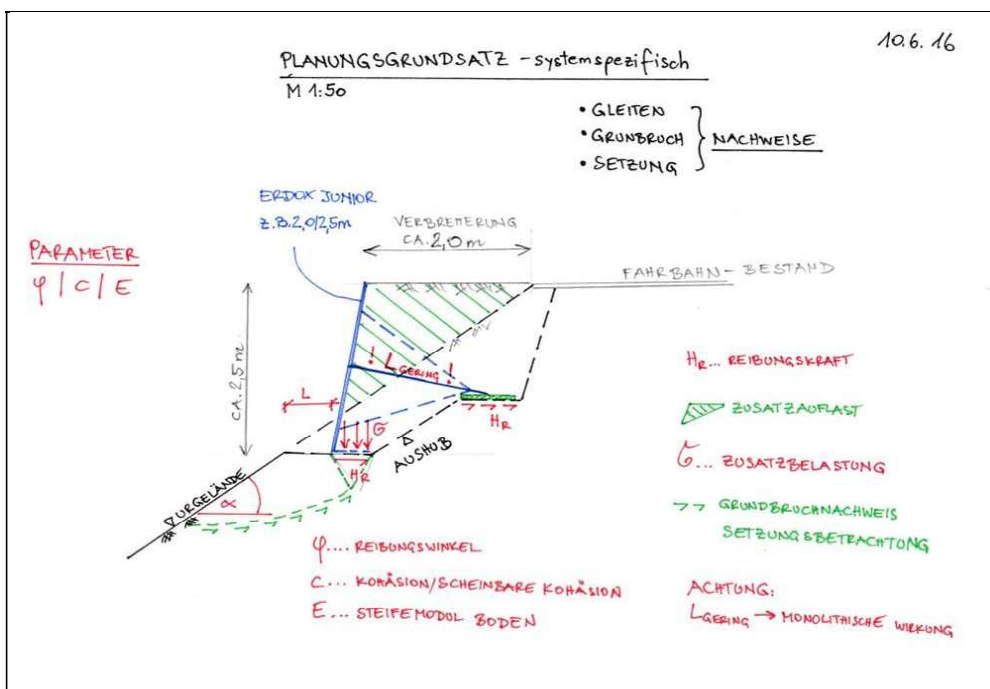 10.6.16
PLANUNGSGRUNDSATZ - systemspezifisch
M 1:50
• GLEITEN
• GRUNBRUCH
• SETZUNG
NACHWEISE
ERDOX JUNIOR
z.B. 2,0/2,5m
VERBREITERUNG
CA. 2,0 m
PARAMETER
φ / C / E
FAHRBAHN - BESTAND
CA. 2,5 m
! L GERING !
L
σ
HR
HR
AUSHUB
URGELÄNDE
α
HR... REIBUNGSKRAFT
ZUSATZAUFLAST
σ... ZUSATZBELASTUNG
GRUNDBRUCHNACHWEIS
SETZUNGSBETRACHTUNG
φ.... REIBUNGSWINKEL
C... KOHÄSION/SCHEINBARE KOHÄSION
E... STEIFEMODUL BODEN
ACHTUNG:
LGERING → MONOLITHISCHE WIRKUNG